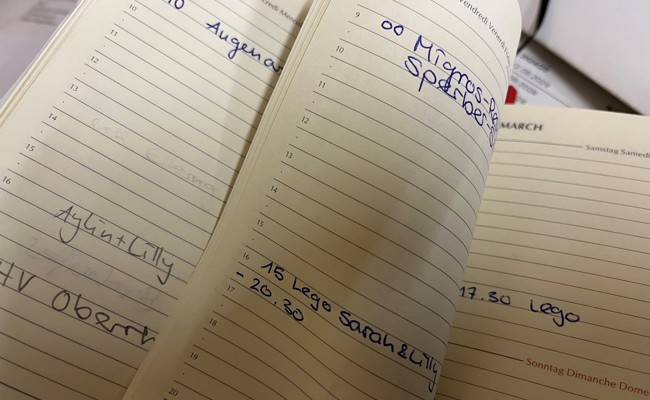 10
10 Augenar
11
12
13
14
15
16
Aylin+Lilly
HV Oberrh
Vendredi Venerdì
9
00 Migros-
10
Sperber-
11
12
13
14
15
16
15 Lego Sarah & Lilly
17
- 20.30
18
19
20
MARCH
Samstag Samedi
17.30 Lego
Sonntag Dimanche Dome